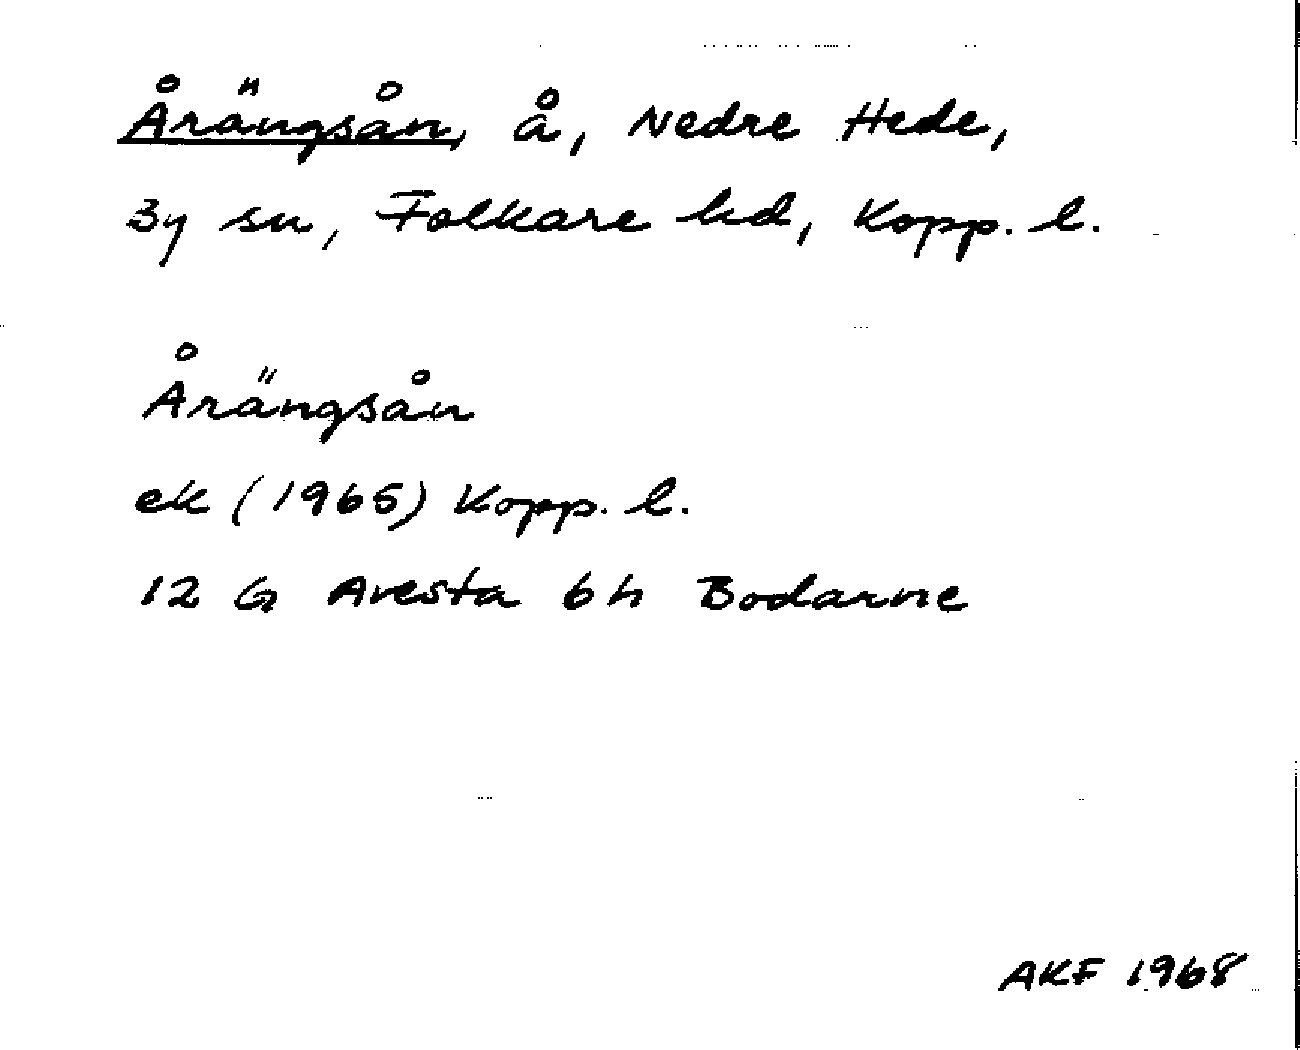 Årängsån, å, Nedre Hede,
By sn, Folkare hd, Kopp. l.
Årängsån
ek (1965) Kopp. l.
12 G Avesta 6 h Bodarne
AKF 1968